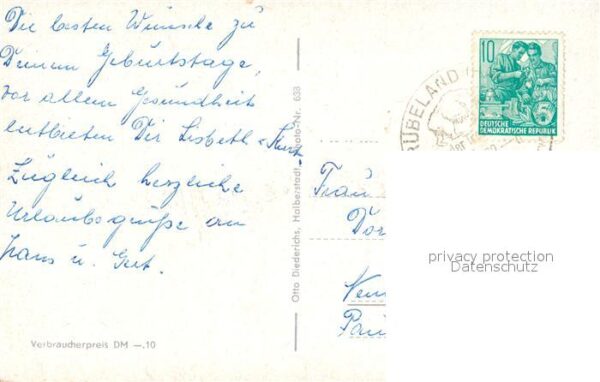 Die besten Wünsche zu
Deinem Geburtstage,
vor allem Gesundheit
entbieten Dir Lisbeth u. Kurt.
Zugleich herzliche
Urlaubsgrüße an
Hans u. Gert.
Verbraucherpreis DM —.10
Otto Diederichs, Halberstadt, Photo-Nr. 638
10
DEUTSCHE
DEMOKRATISCHE REPUBLIK
RÜBELAND
Frau
privacy protection
Datenschutz